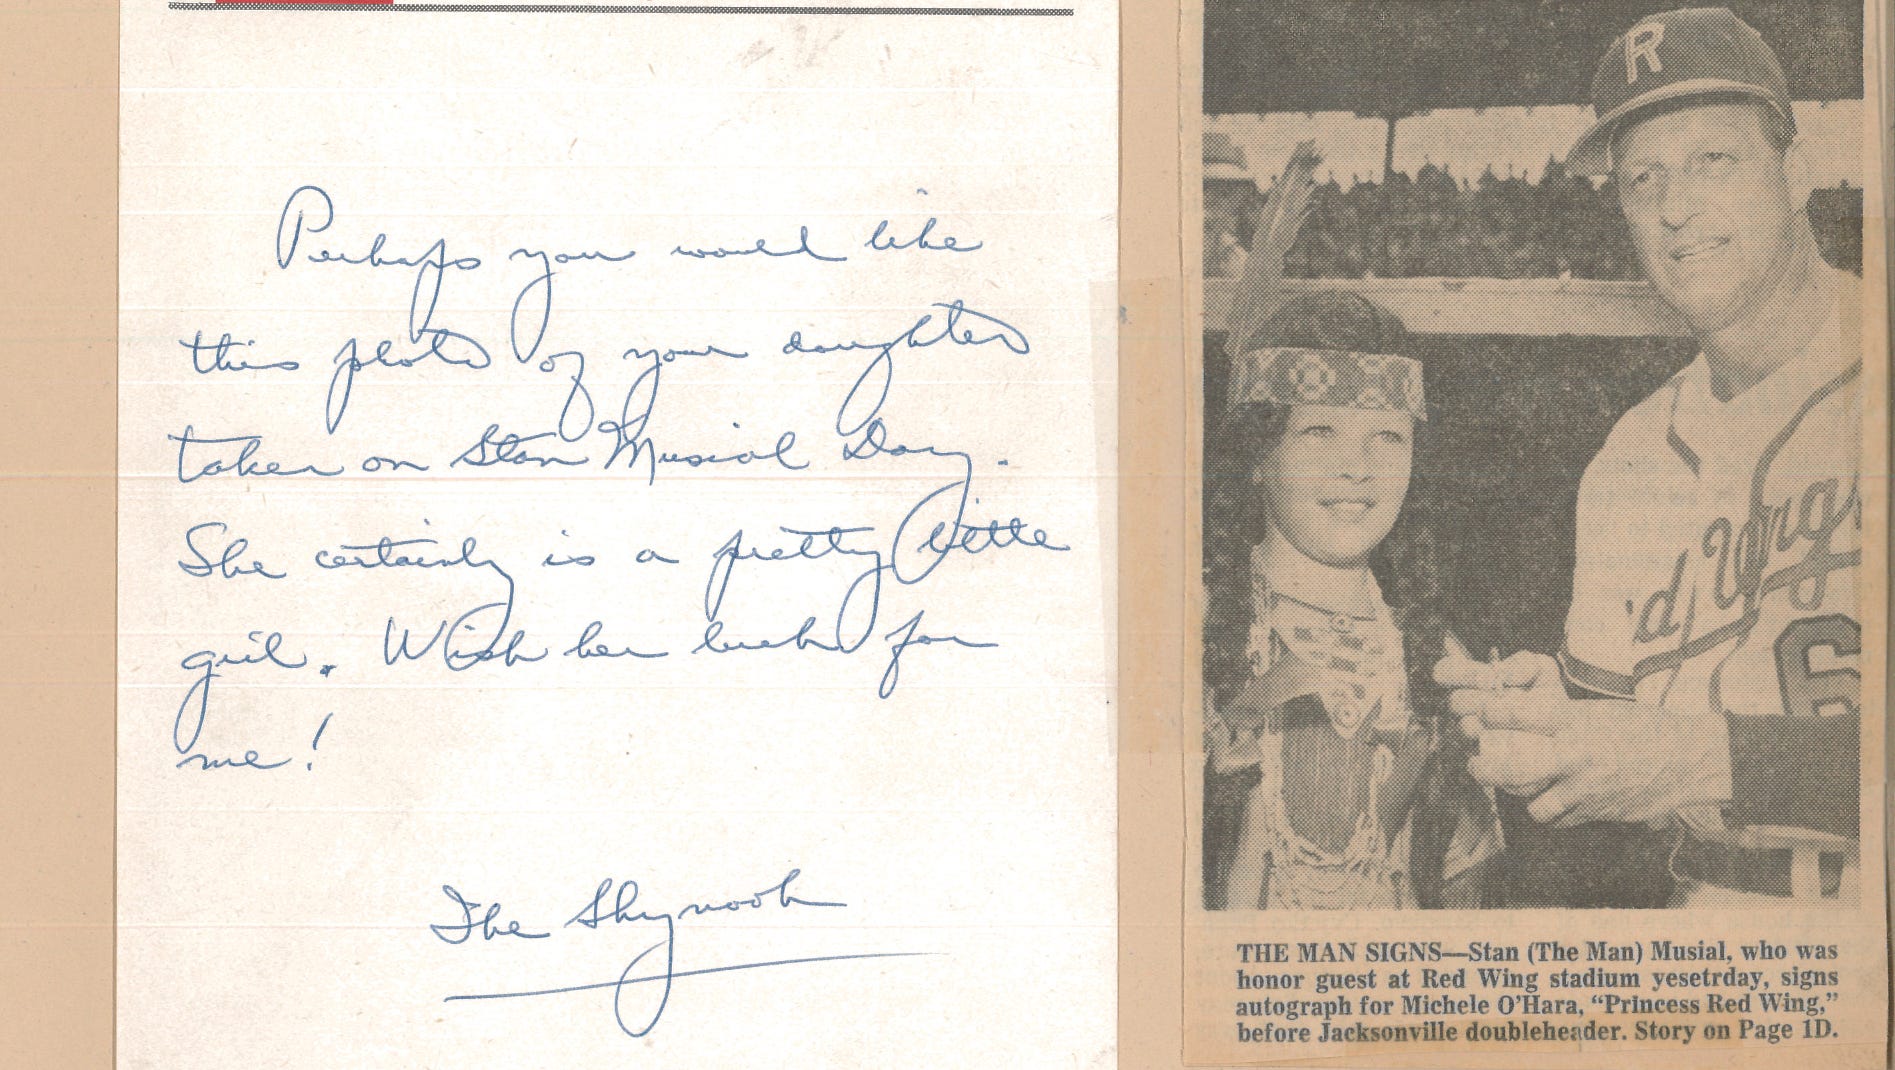 Perhaps you would like
this photo of your daughter
taken on Stan Musial Day.
She certainly is a pretty little
girl. Wish her luck for
me!
The Shynook
R
d Wings
6
THE MAN SIGNS—Stan (The Man) Musial, who was
honor guest at Red Wing stadium yesetrday, signs
autograph for Michele O'Hara, “Princess Red Wing,”
before Jacksonville doubleheader. Story on Page 1D.